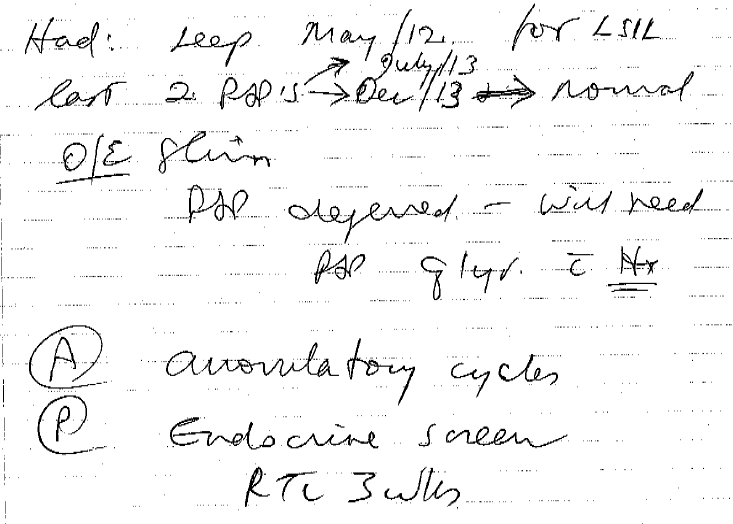 Had: Leep May/12. for LSIL
July/13
last 2 PAP's → Dec/13 ⇒ normal
O/E Slim
PAP deferred - will need
PAP q 1yr. c̄ Hx
(A) anovulatory cycles
(P) Endocrine screen
RTC 3 wks